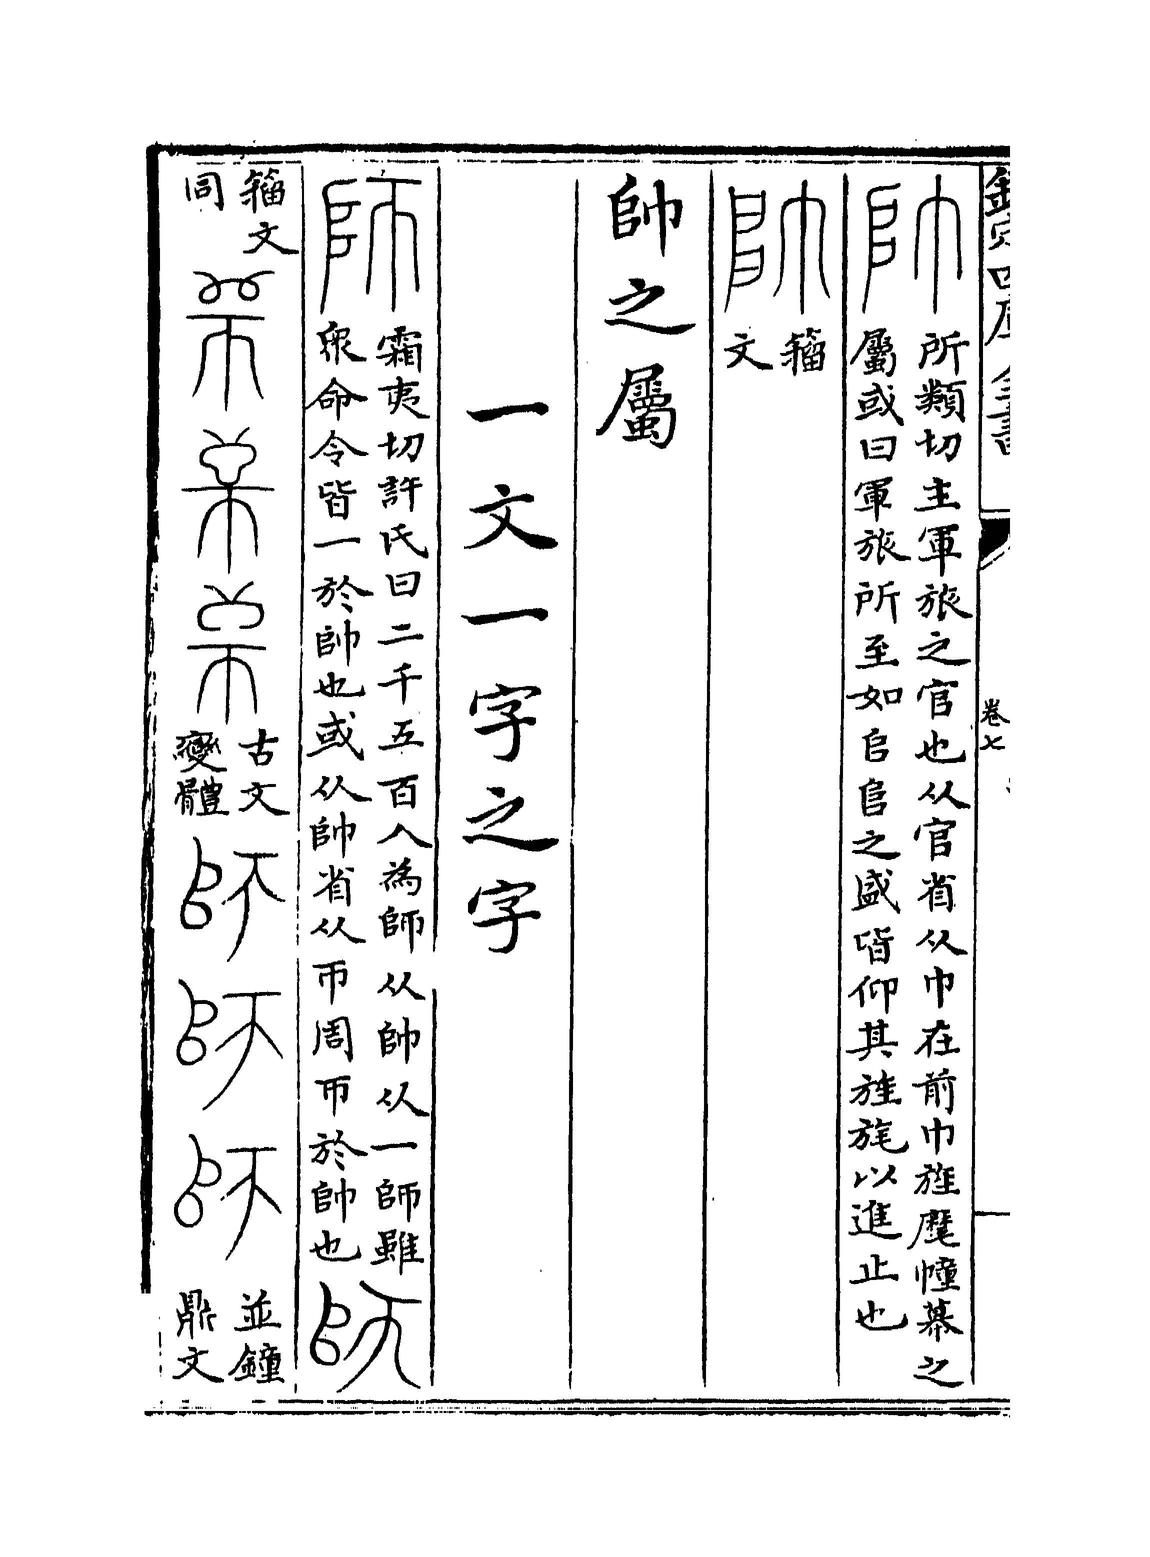 欽定四庫全書
卷七
帥
所類切主軍旅之官也从官省从巾在前巾旌麾幢幕之
屬或曰軍旅所至如𠂤𠂤之盛皆仰其旌旄以進止也
籀
文
帥之屬
一文一字之字
師
霜夷切許氏曰二千五百人為師从帥从一師雖
衆命令皆一於帥也或从帥省从帀周帀於帥也
師
籀文
同
古文
變體
師師師
並鐘
鼎文